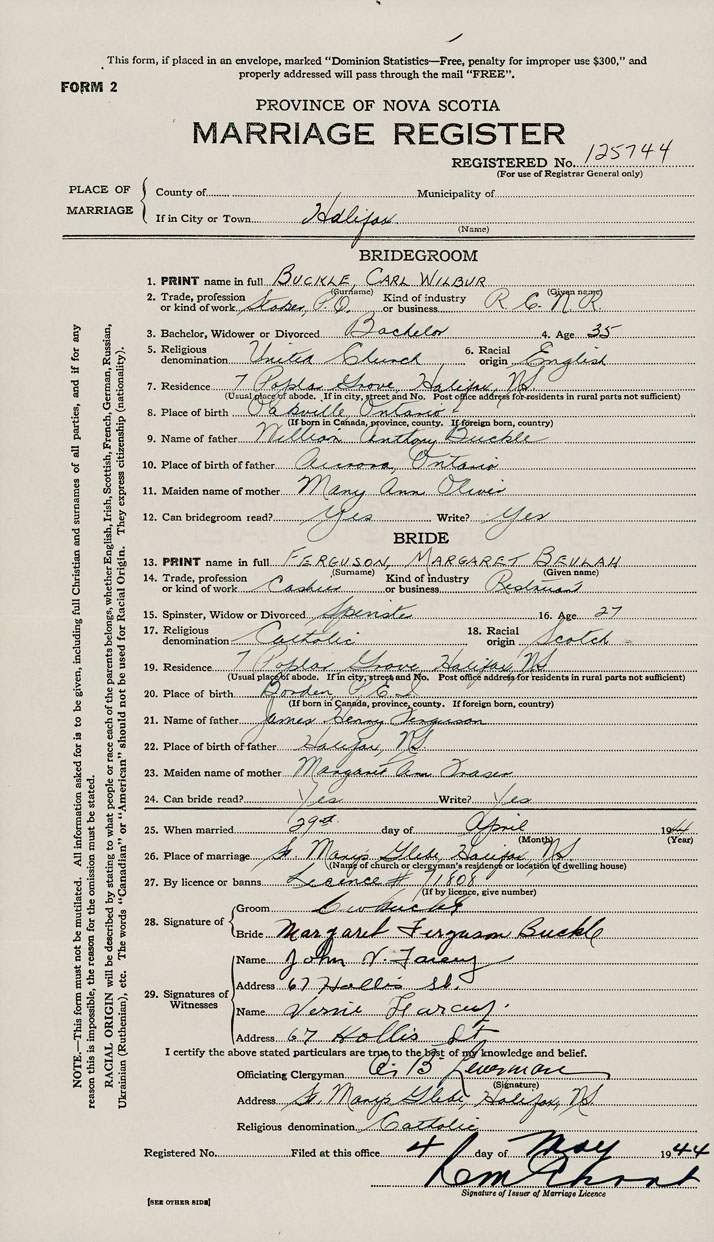 This form, if placed in an envelope, marked "Dominion Statistics—Free, penalty for improper use $300," and
properly addressed will pass through the mail "FREE".
FORM 2
PROVINCE OF NOVA SCOTIA
MARRIAGE REGISTER
REGISTERED No. 125744
(For use of Registrar General only)
PLACE OF MARRIAGE
County of Municipality of
If in City or Town Halifax
(Name)
BRIDEGROOM
1. PRINT name in full BUCKLE, CARL WILBUR
(Surname) (Given name)
2. Trade, profession or kind of work Stoker, P.O. Kind of industry or business R C N R
3. Bachelor, Widower or Divorced Bachelor 4. Age 35
5. Religious denomination United Church 6. Racial origin English
7. Residence 7 Poplar Grove, Halifax, NS
(Usual place of abode. If in city, street and No. Post office address for residents in rural parts not sufficient)
8. Place of birth Oakville, Ontario
(If born in Canada, province, county. If foreign born, country)
9. Name of father William Anthony Buckle
10. Place of birth of father Aurora, Ontario
11. Maiden name of mother Mary Ann Oliver
12. Can bridegroom read? Yes Write? Yes
BRIDE
13. PRINT name in full FERGUSON, MARGARET BEULAH
(Surname) (Given name)
14. Trade, profession or kind of work Cashier Kind of industry or business Restaurant
15. Spinster, Widow or Divorced Spinster 16. Age 27
17. Religious denomination Catholic 18. Racial origin Scotch
19. Residence 7 Poplar Grove Halifax, NS
(Usual place of abode. If in city, street and No. Post office address for residents in rural parts not sufficient)
20. Place of birth Borden, P.E.I.
(If born in Canada, province, county. If foreign born, country)
21. Name of father James Henry Ferguson
22. Place of birth of father Halifax, NS.
23. Maiden name of mother Margaret Ann Fraser
24. Can bride read? Yes Write? Yes
25. When married 29 day of April 1944
(Month) (Year)
26. Place of marriage St Mary's Glebe, Halifax, NS
(Name of church or clergyman's residence or location of dwelling house)
27. By licence or banns Licence # 11808
(If by licence, give number)
28. Signature of
Groom C W Buckle
Bride Margaret Ferguson Buckle
29. Signatures of Witnesses
Name John V.
Address 67 Hollis St.
Name
Address 67 Hollis St
I certify the above stated particulars are true to the best of my knowledge and belief.
Officiating Clergyman
(Signature)
Address St. Mary's Glebe, Halifax, NS
Religious denomination Catholic
Registered No. Filed at this office 4 day of May 1944
Signature of Issuer of Marriage Licence
[SEE OTHER SIDE]
NOTE.—This form must not be mutilated. All information asked for is to be given, including full Christian and surnames of all parties, and if for any
reason this is impossible, the reason for the omission must be stated.
RACIAL ORIGIN will be described by stating to what people or race each of the parents belongs, whether English, Irish, Scottish, French, German, Russian,
Ukrainian (Ruthenian), etc. The words "Canadian" or "American" should not be used for Racial Origin. They express citizenship (nationality).